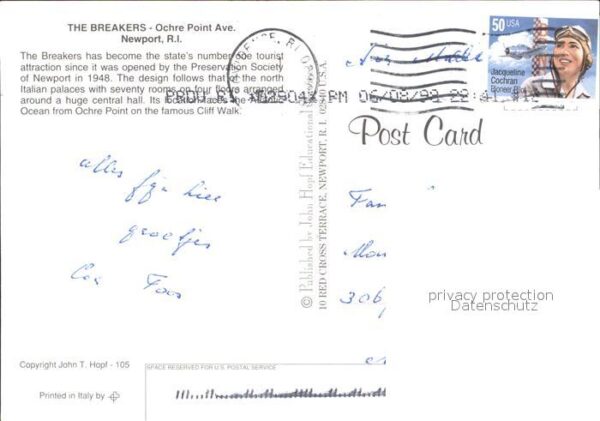 THE BREAKERS - Ochre Point Ave.
Newport, R.I.
The Breakers has become the state's number one tourist
attraction since it was opened by the Preservation Society
of Newport in 1948. The design follows that of the north
Italian palaces with seventy rooms on four floors arranged
around a huge central hall. Its location faces the Atlantic
Ocean from Ochre Point on the famous Cliff Walk.
alles fijn hier
groetjes
Foos
Copyright John T. Hopf - 105
Printed in Italy by
© Published by John Hopf Educational
10 RED CROSS TERRACE, NEWPORT, R.I. 02840 U.S.A.
50 USA
Jacqueline
Cochran
Pioneer Pilot
PM 06/08/99 22:41 #12
Post Card
Fan
Mon
306
privacy protection
Datenschutz
SPACE RESERVED FOR U.S. POSTAL SERVICE